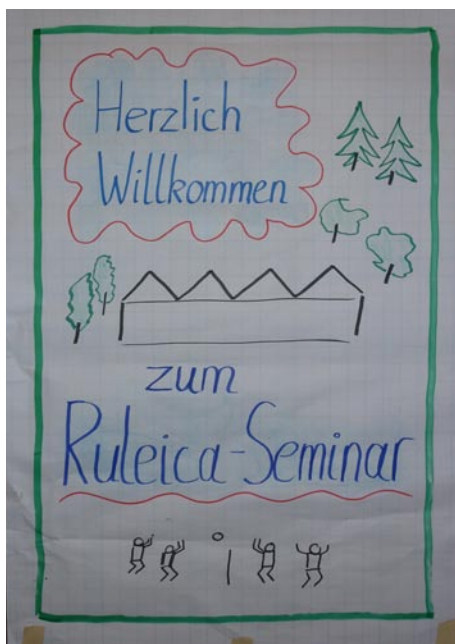 Herzlich
Willkommen
zum
Ruleica-Seminar